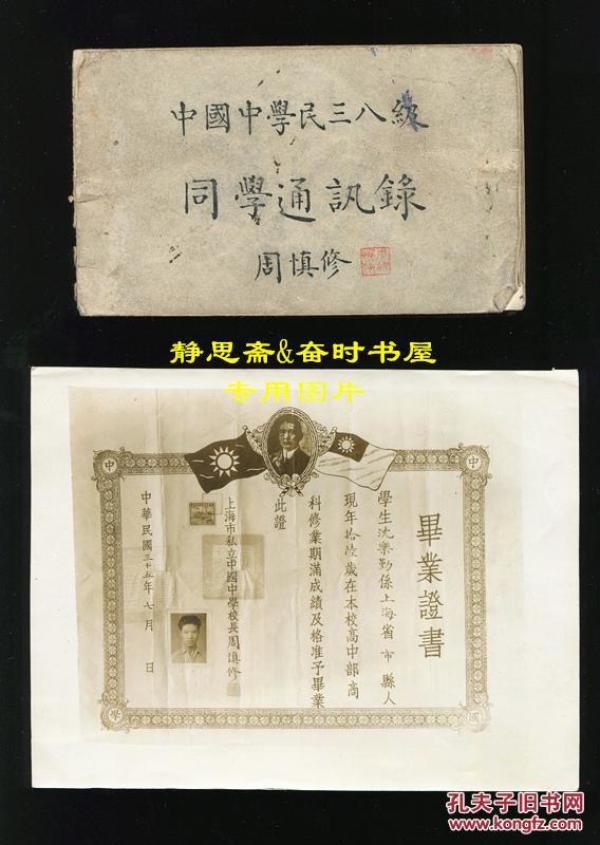 中國中學民三八級
同學通訊錄
周慎修
静思斋&奋时书屋
专用图片
畢業證書
學生沈樂勤係上海省市縣人
現年拾陸歲在本校高中部商
科修業期滿成績及格准予畢業
此證
上海市私立中國中學校長周慎修
中華民國三十五年七月 日
中
中
學
國
孔夫子旧书网
www.kongfz.com